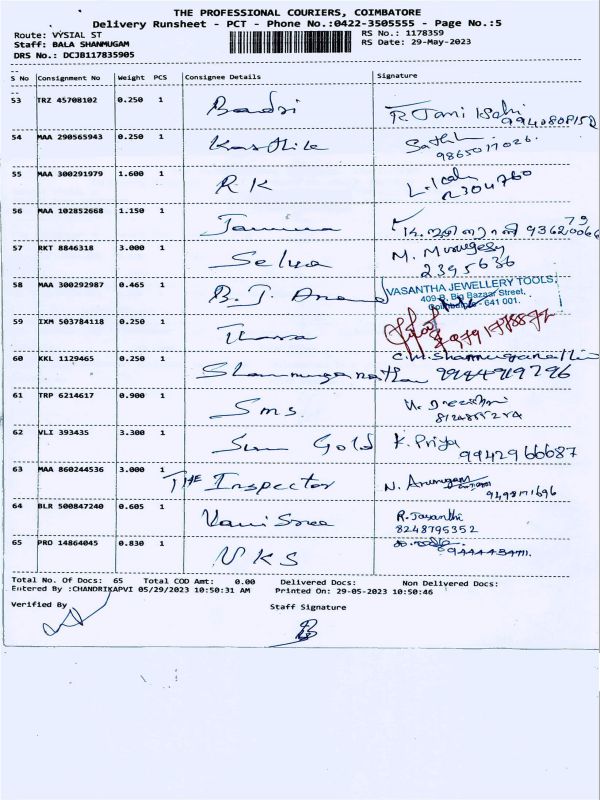 THE PROFESSIONAL COURIERS, COIMBATORE
Delivery Runsheet - PCT - Phone No.:0422-3505555 - Page No.:5
Route: VYSIAL ST RS No.: 1178359
Staff: BALA SHANMUGAM RS Date: 29-May-2023
DRS No.: DCJB117835905
S No Consignment No Weight PCS Consignee Details Signature
53 TRZ 45708102 0.250 1 Badri
54 MAA 290565943 0.250 1 Karthik
9865017026.
55 MAA 300291979 1.600 1 R K
2304760
56 MAA 102852668 1.150 1
57 RKT 8846318 3.000 1 Selva M. Murugesh
2395636
58 MAA 300292987 0.465 1 B. J. Anand VASANTHA JEWELLERY TOOLS,
409-B, Big Bazaar Street,
Coimbatore - 641 001.
59 IXM 503784118 0.250 1
60 KKL 1129465 0.250 1 Shanmuganathan C.M.Shanmuganathan
61 TRP 6214617 0.900 1 Sms.
62 VLI 393435 3.300 1 Sun Gold K. Priya
9942966687
63 MAA 860244536 3.000 1 THE Inspector N. Arumugam
9498171696
64 BLR 500847240 0.605 1 Vani Sree R. Jayanthi
8248795352
65 PRO 14864045 0.830 1 VKS
Total No. Of Docs: 65 Total COD Amt: 0.00 Delivered Docs: Non Delivered Docs:
Entered By :CHANDRIKAPVI 05/29/2023 10:50:31 AM Printed On: 29-05-2023 10:50:46
Verified By Staff Signature